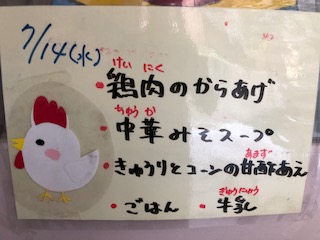 7/14(水)
けい にく
・鶏肉のからあげ
ちゅう か
・中華みそスープ
あまず
・きゅうりとコーンの甘酢あえ
ぎゅうにゅう
・ごはん ・牛乳